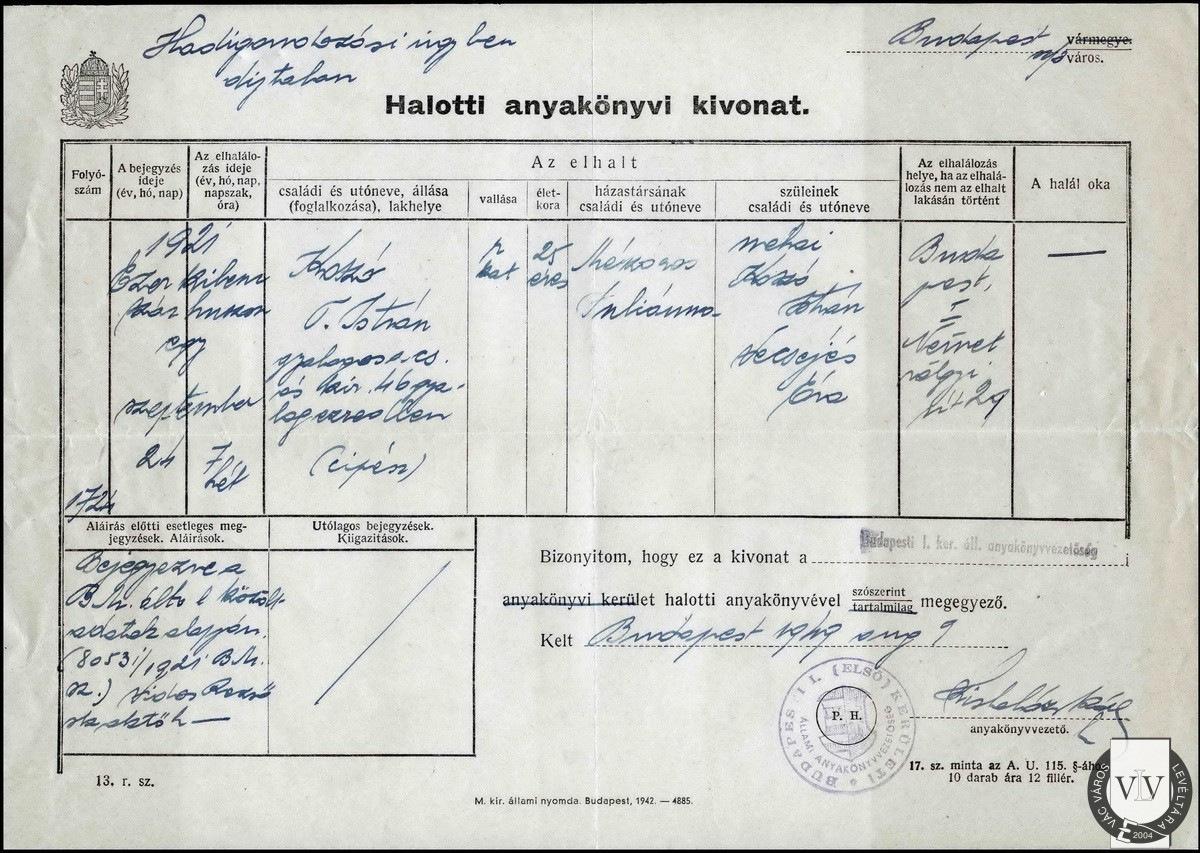 Hadigondozási ügyben
díjtalan
Budapest vármegye.
város.
Halotti anyakönyvi kivonat.
Folyó-
szám
A bejegyzés
ideje
(év, hó, nap)
Az elhalálo-
zás ideje
(év, hó, nap,
napszak,
óra)
Az elhalt
családi és utóneve, állása
(foglalkozása), lakhelye
vallása
élet-
kora
házastársának
családi és utóneve
szüleinek
családi és utóneve
Az elhalálozás
helye, ha az elhalá-
lozás nem az elhalt
lakásán történt
A halál oka
1724
1921
Ezer kilenc
száz huszon
egy
szeptember
24
7
hét
Kozó
T. István
(cipész)
r
kat
25
éves
Mészáros
Juliánna
néhai
Kozó
István
Kecsejés
Éva
Buda
pest,
I
Német
völgyi
út 29
—
Aláírás előtti esetleges meg-
jegyzések. Aláírások.
Bejegyezve a
B.M. által közölt
adatok alapján.
Utólagos bejegyzések.
Kiigazitások.
Bizonyitom, hogy ez a kivonat a Budapesti I. ker. áll. anyakönyvvezetőség i
anyakönyvi kerület halotti anyakönyvével szószerint
tartalmilag megegyező.
Kelt Budapest 1949 aug 9
BUDAPESTI I. (ELSŐ) KERÜLETI
ÁLLAMI ANYAKÖNYVVEZETŐSÉG
P. H.
anyakönyvvezető.
13. r. sz.
M. kir. állami nyomda. Budapest, 1942. — 4885.
17. sz. minta az A. U. 115. §-ához
10 darab ára 12 fillér.
VÁC VÁROS LEVÉLTÁRA
VLV
2004